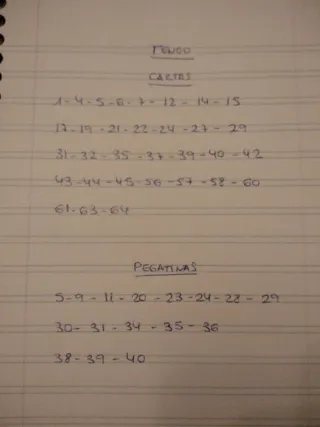 TENGO
CARTAS
1-4-5-6-7-12-14-15
17-19-21-22-24-27-29
31-32-35-37-39-40-42
43-44-45-56-57-58-60
61-63-64
PEGATINAS
5-9-11-20-23-24-28-29
30-31-34-35-36
38-39-40